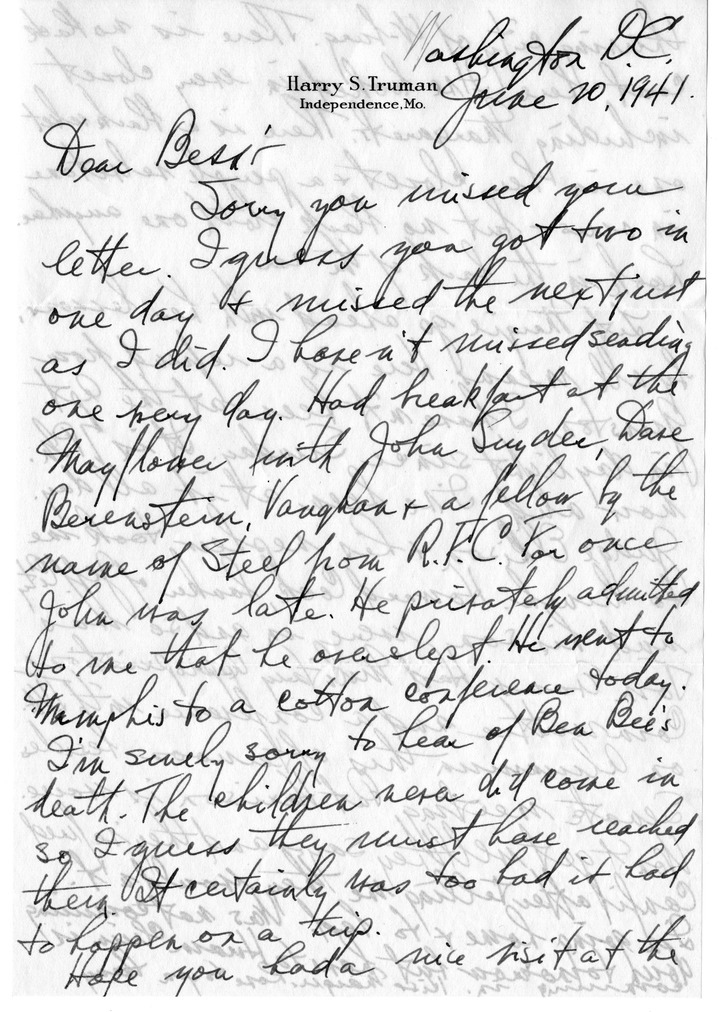 Washington D.C.
Harry S. Truman
Independence, Mo.
June 20, 1941.
Dear Bess:-
Sorry you missed your
letter. I guess you got two in
one day & missed the next just
as I did. I haven't missed sending
one every day. Had breakfast at the
Mayflower with John Snyder, Dave
Berenstein, Vaughan & a fellow by the
name of Steel from R.F.C. For once
John was late. He privately admitted
to me that he overslept. He went to
Memphis to a cotton conference today.
I'm surely sorry to hear of Ben Bee's
death. The children never did come in
so I guess they must have reached
them. It certainly was too bad it had
to happen on a trip.
Hope you had a nice visit at the